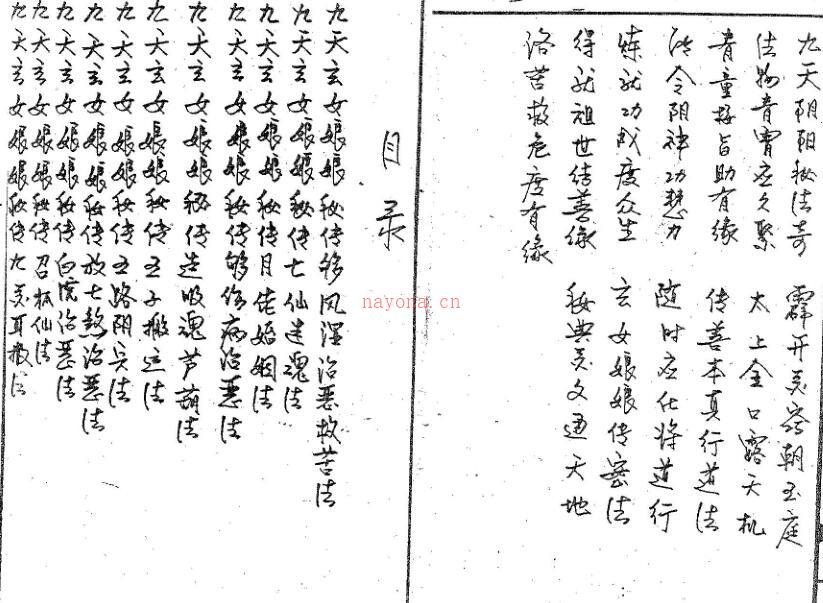 九天阴阳秘法奇 霹开灵窍朝玉庭
法物青霄应久聚 太上金口露天机
青童接旨助有缘 传善本真行道法
敕令阴神功慧力 随时应化将道行
炼就功成度众生 玄女娘娘传密法
得就祖世传善缘 秘典灵文通天地
洛苦救危度有缘
目录
九天玄女娘娘秘传移风湿治恶救苦法
九天玄女娘娘秘传七仙迷魂法
九天玄女娘娘秘传月佬婚姻法
九天玄女娘娘秘传够伤病治恶法
九天玄女娘娘秘传造吸魂芦葫法
九天玄女娘娘秘传五子搬运法
九天玄女娘娘秘传五路阴兵法
九天玄女娘娘秘传放七煞治恶法
九天玄女娘娘秘传白虎治恶法
九天玄女娘娘秘传召狐仙法
九天玄女娘娘秘传九灵耳报法
nayona.cn